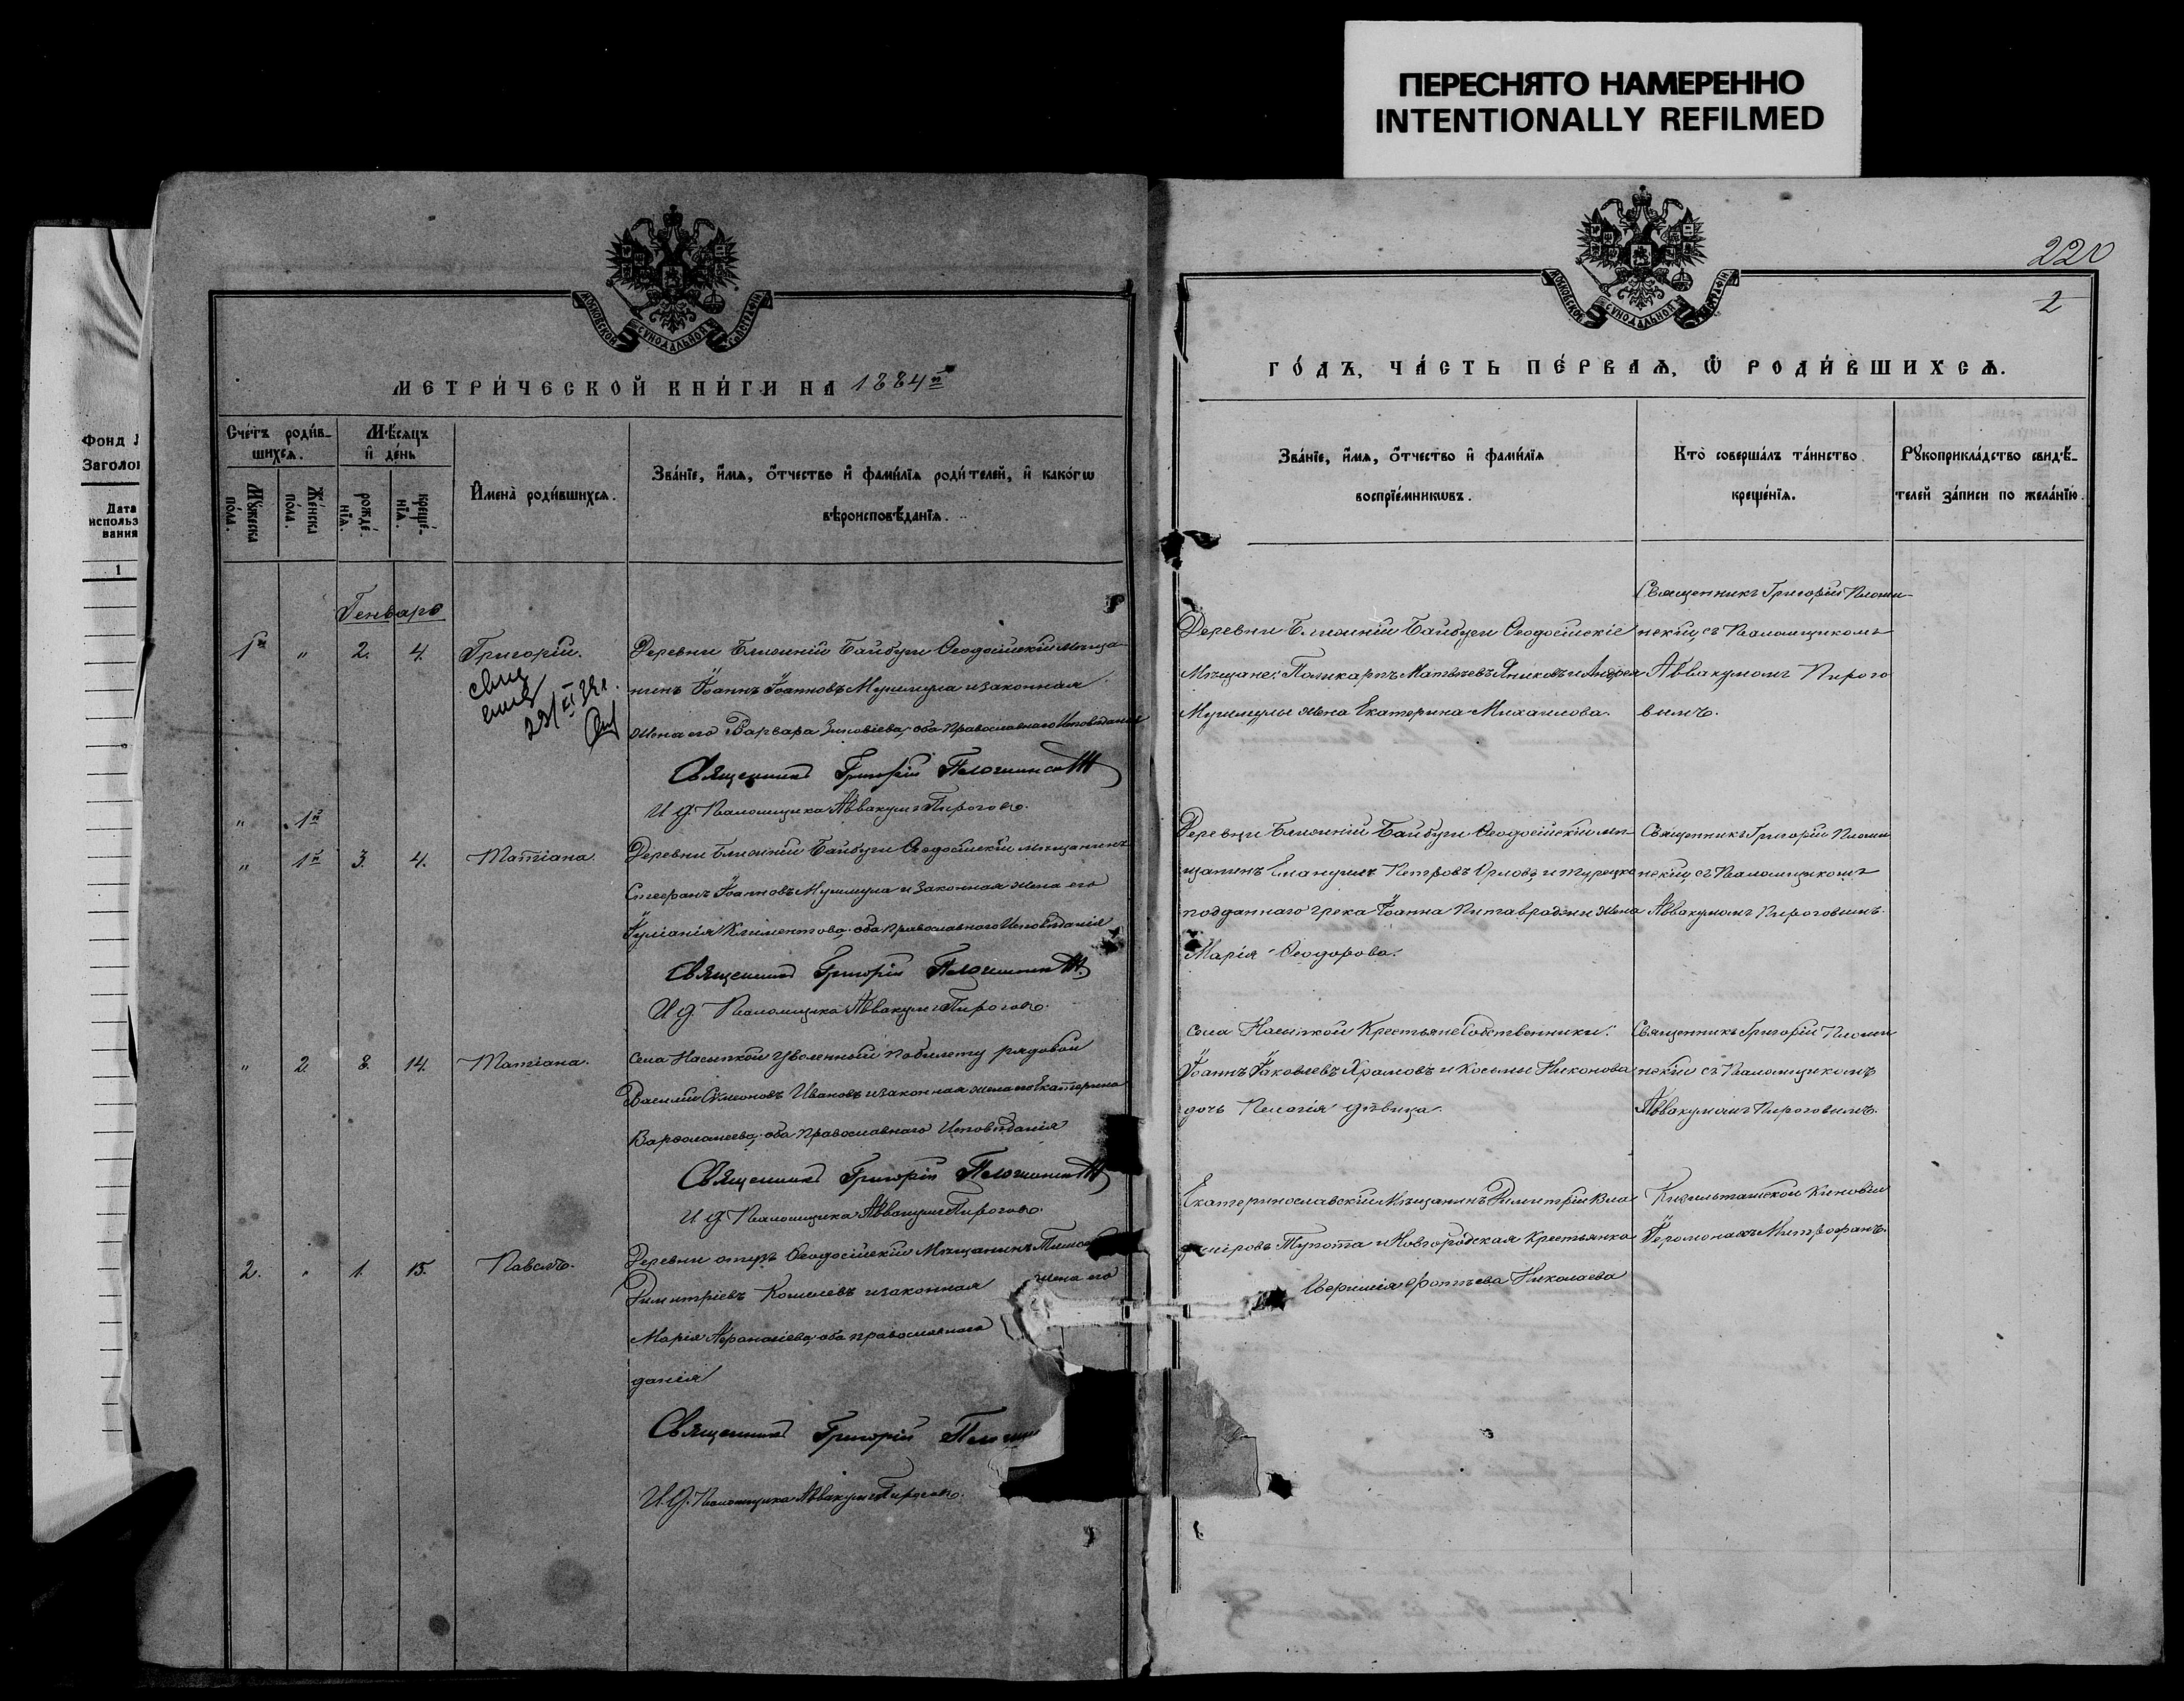 ПЕРЕСНЯТО НАМЕРЕННО
INTENTIONALLY REFILMED
Фонд
Заголо
Дата
использ
вания
1
МОСКОВСКОЙ СУНОДАЛЬНОЙ ТѴПОГРАФІИ
МЕТРИ́ЧЕСКОЙ КНИ́ГИ НА 1884й
Сче́тъ роди́в-
шихсѧ.
Мѣ́сѧцъ
и҆ де́нь
Мꙋ́жеска
по́ла.
Же́нска
по́ла.
рожде́
нїѧ.
креще́-
нїѧ.
И҆мена̀ роди́вшихсѧ.
Зва́нїе, и҆́мѧ, ѻ҆́тчество и҆ фами́лїѧ роди́телей, и҆ како́гѡ
вѣроисповѣ́данїѧ.
Генваръ
1й " 2. 4. Григорій.
Деревни Ближній Байбуги Ѳеодосійскій мѣща-
нинъ Іоаннъ Іоанновъ Мушмула и законная
жена его Варвара Зиновіева, оба Православнаго Исповѣданія
Священникъ Григорій
И. д. Псаломщика Аввакумъ Пироговъ.
" 1й
" 1й 3. 4. Татіана.
Деревни Ближній Байбуги Ѳеодосійскій мѣщанинъ
Стефанъ Іоанновъ Мушмула и законная жена его
Іуліанія Климентова, оба Православнаго Исповѣданія
Священникъ Григорій
И. д. Псаломщика Аввакумъ Пироговъ.
" 2. 8. 14. Татіана.
Села Насыпкой уволенный по билету рядовой
Василій Симеоновъ Ивановъ и законная жена его Екатерина
Варѳоломеева, оба Православнаго Исповѣданія
Священникъ Григорій
И. д. Псаломщика Аввакумъ Пироговъ.
2. " 1. 15. Павелъ.
Деревни Ѳеодосійскій Мѣщанинъ
Димитріевъ Кошелевъ и законная жена его
Марія Аѳанасіева, оба православнаго
данія
Священникъ Григорій
И. д. Псаломщика Аввакумъ Пироговъ.
220
2
МОСКОВСКОЙ СУНОДАЛЬНОЙ ТѴПОГРАФІИ
ГО́ДЪ, ЧА́СТЬ ПЕ́РВАѦ, Ѽ РОДИ́ВШИХСѦ.
Зва́нїе, и҆́мѧ, ѻ҆́тчество и҆ фами́лїѧ
воспрїе́мникѡвъ.
Кто̀ соверша́лъ та́инство
креще́нїѧ.
Рꙋкоприкла́дство свидѣ́-
телей за́писи по жела́нїю.
Деревни Ближній Байбуги Ѳеодосійскіе
Мѣщане: Поликарпъ Матвѣевъ и Андрея
Мушмулы жена Екатерина Михаилова.
Священникъ Григорій
нскій, съ Псаломщикомъ
Аввакумомъ Пирого
вымъ.
Деревни Ближній Байбуги Ѳеодосійскій мѣ-
щанинъ Емануилъ Петровъ Орловъ и турецко
подданнаго грека Іоанна жена
Марія Ѳеодорова.
Священникъ Григорій
нскій, съ Псаломщикомъ
Аввакумомъ Пироговымъ.
Села Насыпкой Крестьяне Собственники:
Іоаннъ Іаковлевъ Храмовъ и Косьмы Никонова
дочь Пелагія дѣвица.
Священникъ Григорій
нскій съ Псаломщикомъ
Аввакумомъ Пироговымъ.
Екатеринославскій Мѣщанинъ Димитрій Вла
диміровъ Тупота и Новгородская Крестьянка
Фотіева Николаева
Кизильташской Киновіи
Іеромонахъ Митрофанъ.